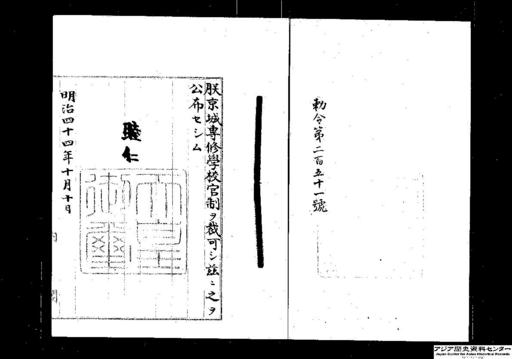 勅令第二百五十一號
朕京城專修學校官制ヲ裁可シ茲ニ之ヲ
公布セシム
睦仁
天皇
御璽
明治四十四年十月十日
内閣
アジア歴史資料センター
Japan Center for Asian Historical Records